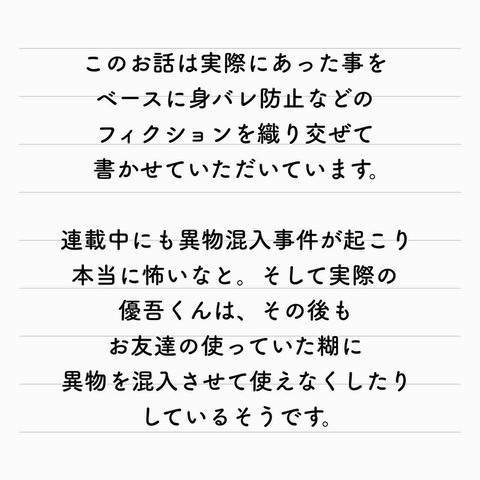 このお話は実際にあった事を
ベースに身バレ防止などの
フィクションを織り交ぜて
書かせていただいています。
連載中にも異物混入事件が起こり
本当に怖いなと。そして実際の
優吾くんは、その後も
お友達の使っていた糊に
異物を混入させて使えなくしたり
しているそうです。